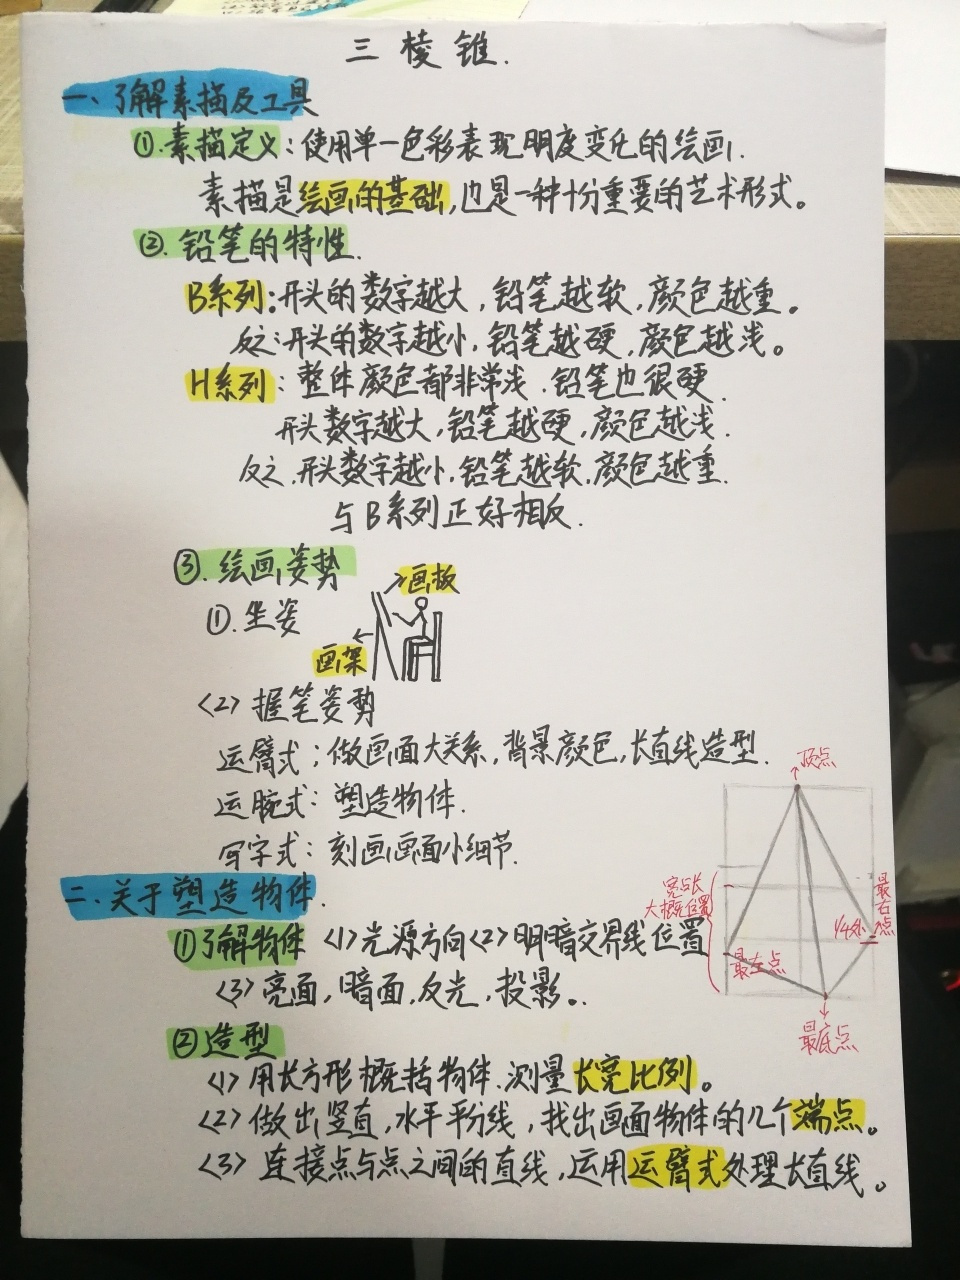 三棱锥.
一、了解素描及工具
①.素描定义:使用单一色彩表现明度变化的绘画.
素描是绘画的基础,也是一种十分重要的艺术形式。
②.铅笔的特性.
B系列:开头的数字越大,铅笔越软,颜色越重。
反之:开头的数字越小,铅笔越硬,颜色越浅。
H系列:整体颜色都非常浅.铅笔也很硬.
开头数字越大,铅笔越硬,颜色越浅.
反之.开头数字越小,铅笔越软,颜色越重.
与B系列正好相反.
③.绘画姿势
画板
①.坐姿
画架
<2>握笔姿势
运臂式:做画面大关系,背景颜色,长直线造型.
顶点
运腕式:塑造物体.
写字式:刻画画面小细节.
二.关于塑造物体.
宽占长
大概位置
最右点
1/4处
①了解物体 <1>光源方向<2>明暗交界线位置
最左点
<3>亮面,暗面,反光,投影。
最底点
②造型
<1>用长方形概括物体.测量长宽比例。
<2>做出竖直,水平平分线,找出画面物体的几个端点。
<3>连接点与点之间的直线,运用运臂式处理长直线。